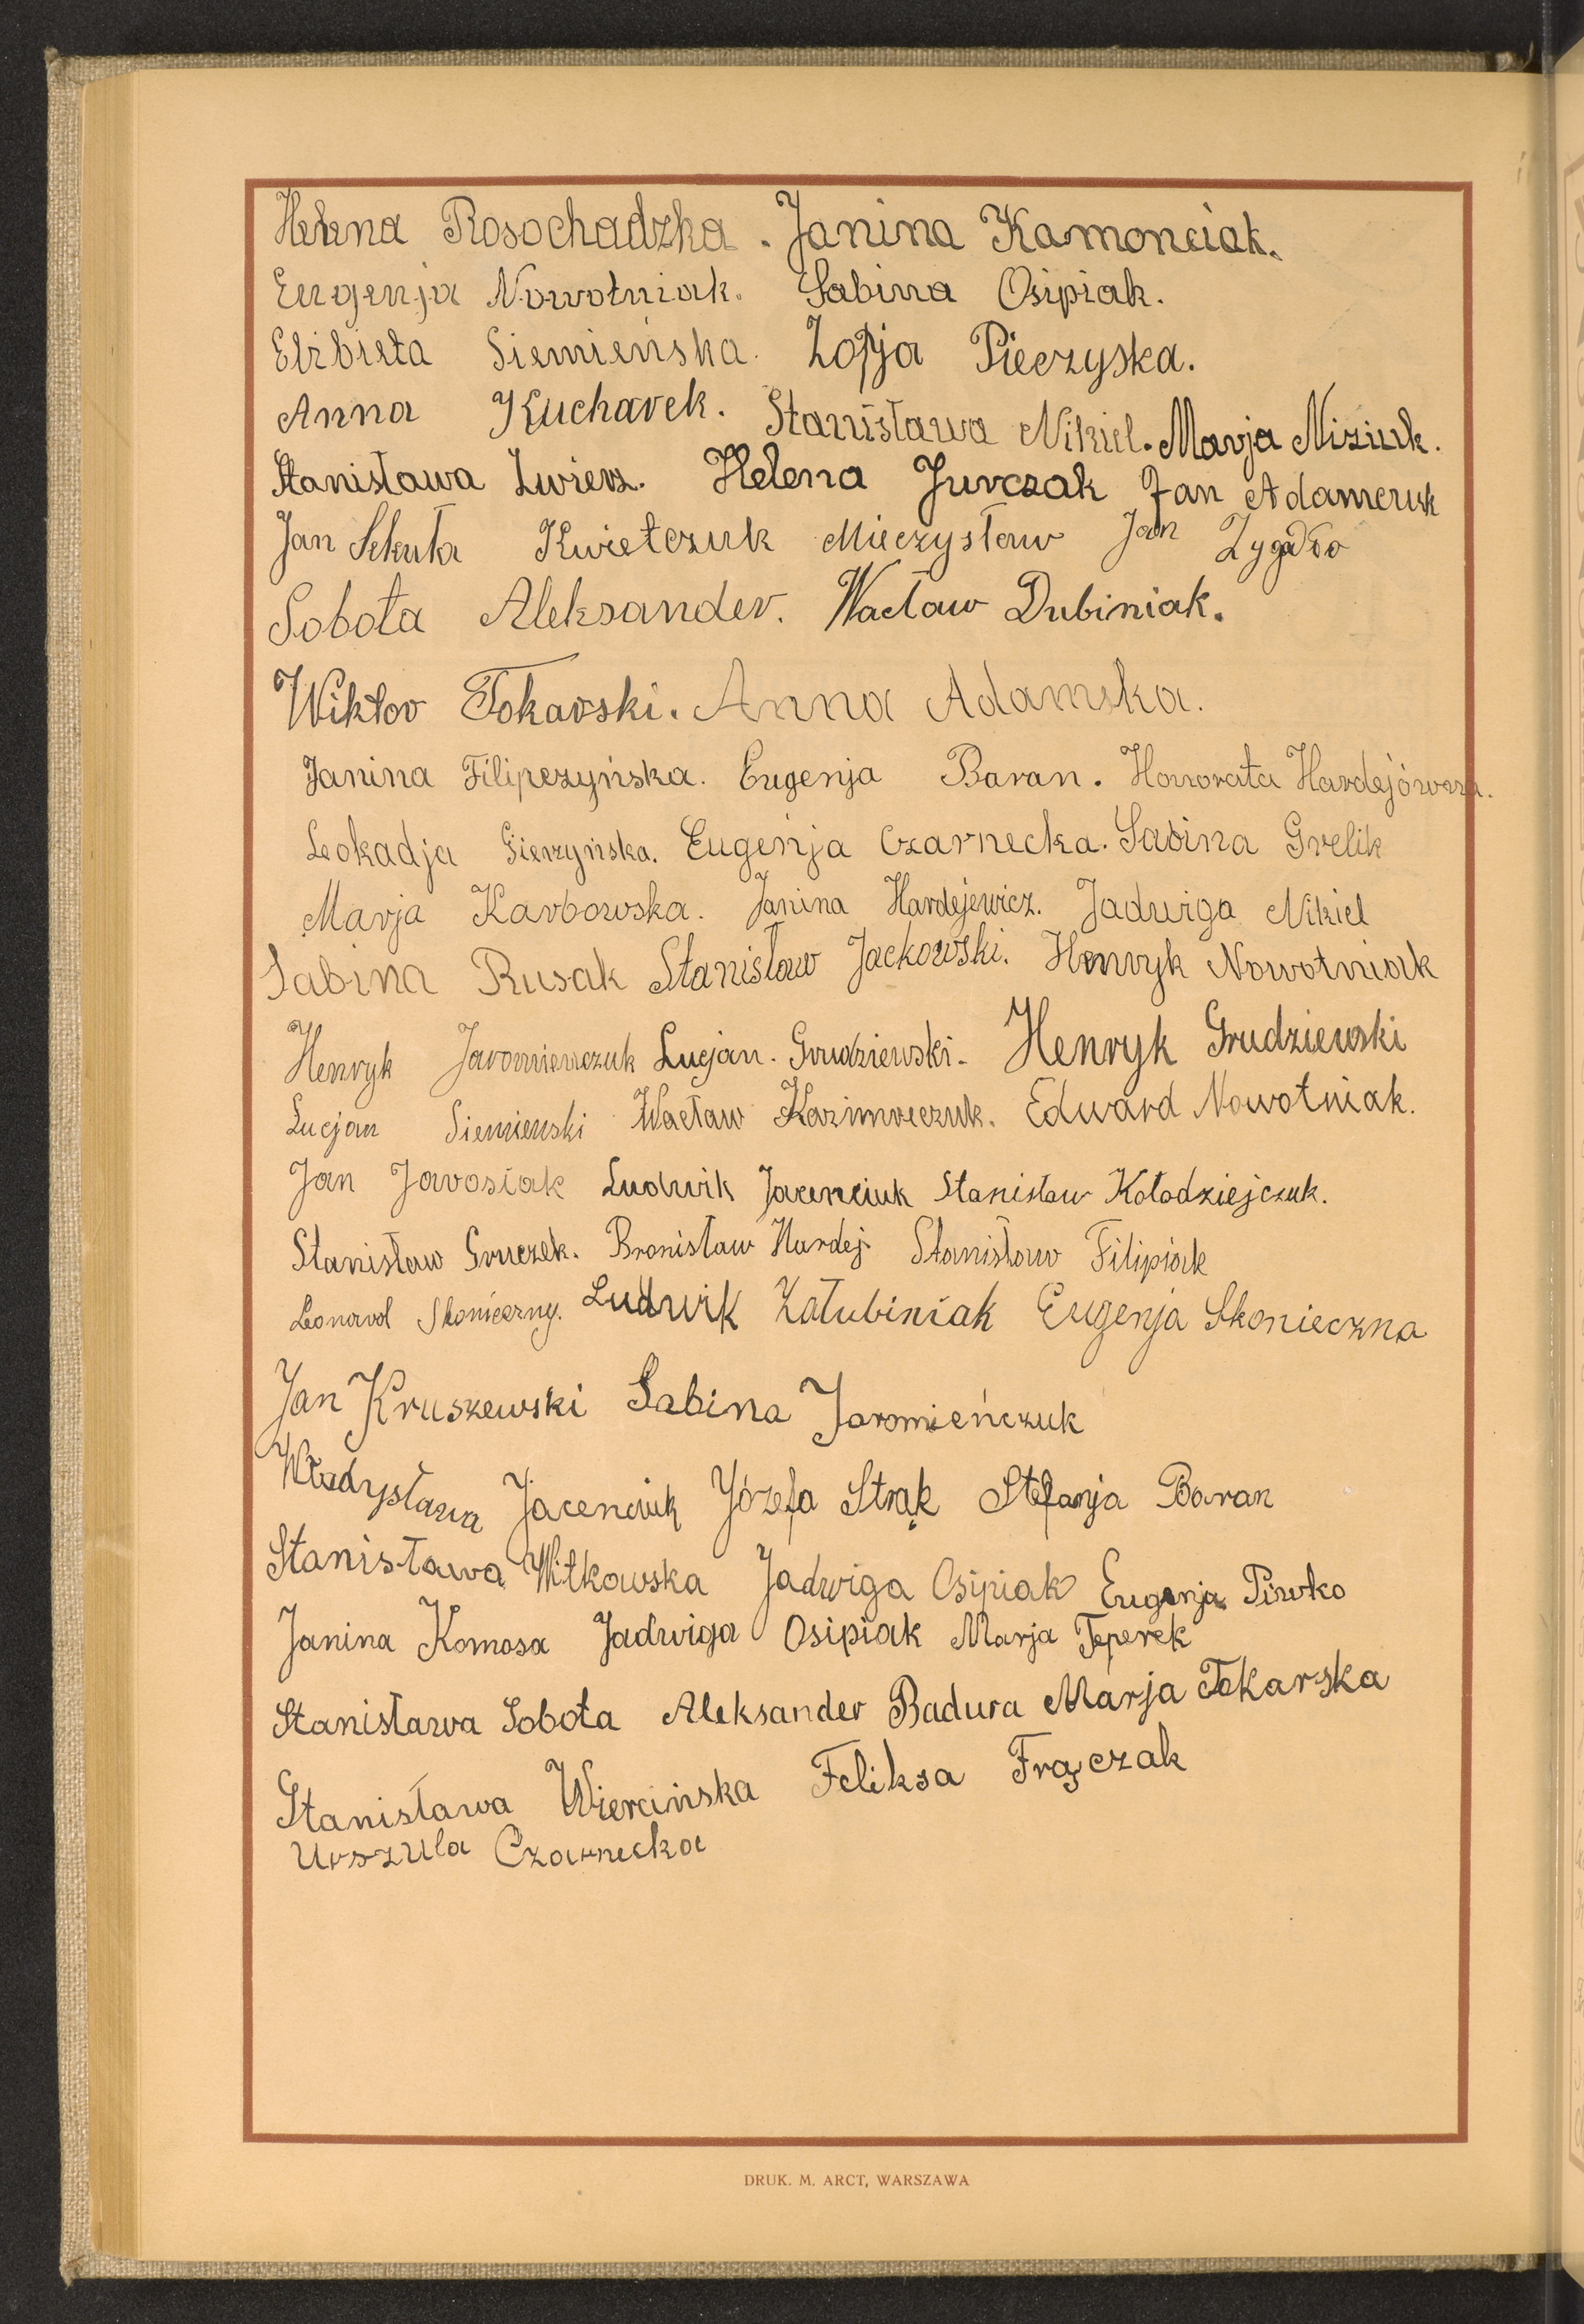 Helena Rosochadzka. Janina Kamonciak.
Eugenja Nowotniak. Sabina Osipiak.
Elżbieta Siemieńska. Zofja Pieczyska.
Anna Kucharek. Stanisława Nikiel. Marja Niziuk.
Stanisława Zwierz. Helena Jurczak Jan Adameruk
Jan Sekuła Kwietczuk Mieczysław Jan Zygadło
Sobota Aleksander. Wacław Dubiniak.
Wiktor Tokarski. Anna Adamska.
Janina Filipczyńska. Eugenja Baran. Honorata Hardejówna.
Leokadja Gierzyńska. Eugenja Czarnecka. Sabina Grelik
Marja Karbowska. Janina Hardejewicz. Jadwiga Nikiel
Sabina Rusak Stanisław Jackowski. Henryk Nowotniak
Henryk Jaromienczuk Lucjan. Grudziewski. Henryk Grudziewski
Lucjan Siemienski Wacław Kazimierczuk. Edward Nowotniak.
Jan Jarosiak Ludwik Jacenciuk Stanisław Kołodziejczuk.
Stanisław Gruczek. Bronisław Hardej Stanisław Filipiak
Leonard Skonieczny. Ludwik Załubiniak Eugenja Skonieczna
Jan Kruszewski Sabina Jaromieńczuk
Władysława Jacenciuk Józefa Strąk Stefanja Baran
Stanisława Witkowska Jadwiga Osipiak Eugenja Piwko
Janina Komosa Jadwiga Osipiak Marja Teperek
Stanisława Sobota Aleksander Badura Marja Tokarska
Stanisława Wiercińska Feliksa Frączak
Urszula Czarnecka
DRUK. M. ARCT, WARSZAWA